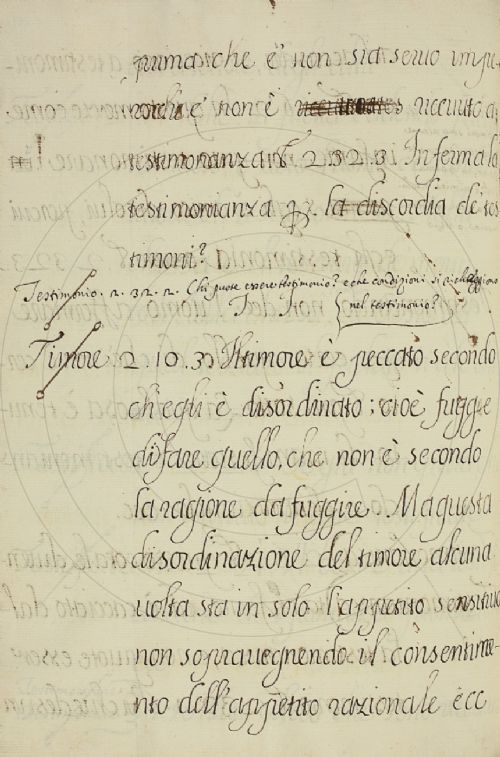 prima che e' non sia seruo impe
roche e' non è riceuuto a
testimonanza 2. 2.3.2.3. Inferma lo
testimonianza la discordia de tes
timoni?
Testimonio. 2. 32. 2. Chi puote essere testimonio? e che condizioni si richeggiono
nel testimonio?
Timore 2. 10. 3. Il timore è peccato secondo
ch'egli è disordinato; cioè fugge
di fare quello, che non è secondo
la ragione da fuggire. Ma questa
disordinazione del timore alcuna
uolta sta in solo l'appetito sensitiuo
non soprauegnendo il consentime
nto dell'appetito razionale ecc